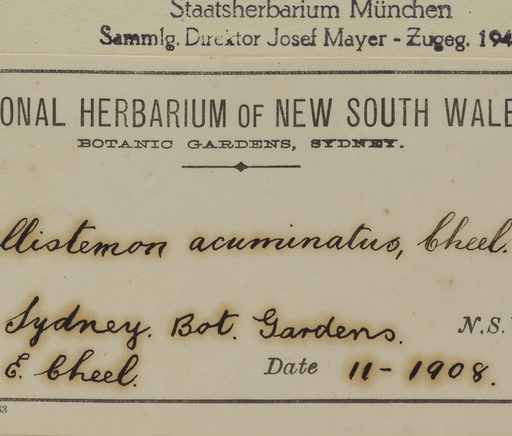 Staatsherbarium München
Sammlg. Direktor Josef Mayer - Zugeg. 194
ONAL HERBARIUM OF NEW SOUTH WALE
BOTANIC GARDENS, SYDNEY.
llistemon acuminatus, Cheel.
Sydney. Bot. Gardens. N.S.
E. Cheel. Date 11-1908.
63